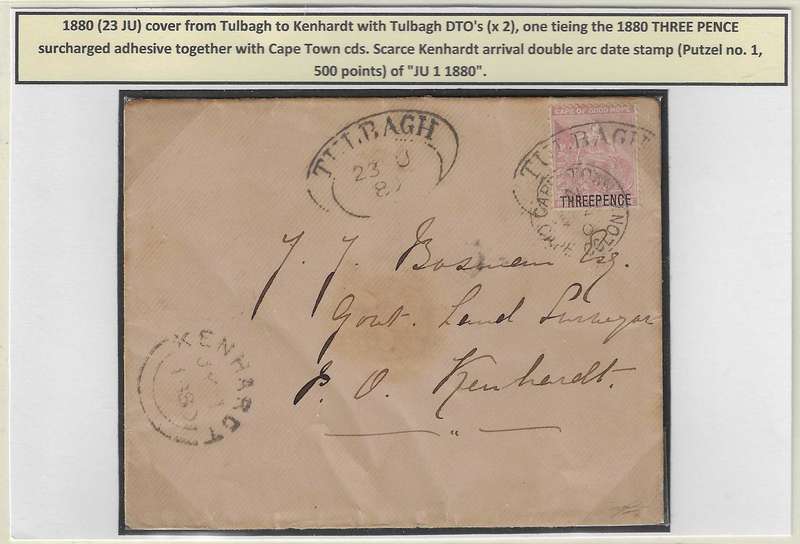 1880 (23 JU) cover from Tulbagh to Kenhardt with Tulbagh DTO's (x 2), one tieing the 1880 THREE PENCE
surcharged adhesive together with Cape Town cds. Scarce Kenhardt arrival double arc date stamp (Putzel no. 1,
500 points) of "JU 1 1880".
TULBAGH
23 JU
CAPE OF GOOD HOPE
TULBAGH
CAPE TOWN
THREEPENCE
J. J. Bosman Esq.
Govt. Land Surveyor
P. O. Kenhardt.
KENHARDT
JU 1
1880